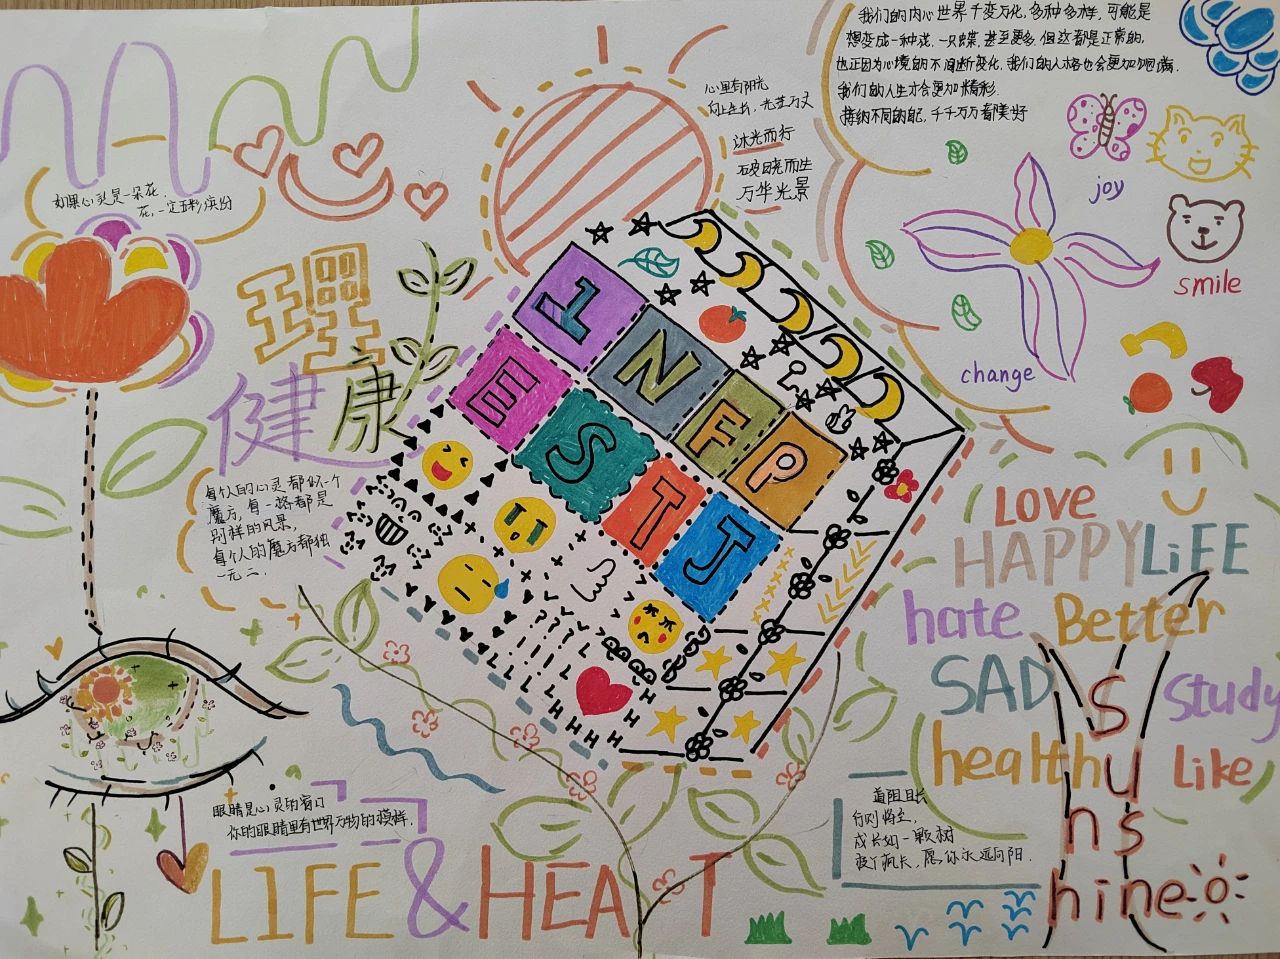 我们的内心世界千变万化,多种多样,可能是
想变成一种花,一只蝶,甚至更多,但这都是正常的,
也正因为心境的不间断变化,我们的人格也会更加圆满,
我们的人生才会更加精彩.
接纳不同的自己,千千万万看美好
心里有阳光
向上生长,光芒万丈
沐光而行
破晓而生
万华光景
如果心灵是一朵花,
花,一定五彩缤纷
joy
smile
change
理
健康
I N F P
E S T J
每个人的心灵都似一个
魔方,每一格都是
别样的风景,
每个人的魔方都独
一无二.
LOVE
HAPPY LiFE
hate Better
SAD Study
healthy Like
Sunshine
眼睛是心灵的窗口
你的眼睛里有世界万物的模样.
道阻且长
行则将至,
成长如一颗树
疯长,愿你永远向阳.
LIFE & HEART